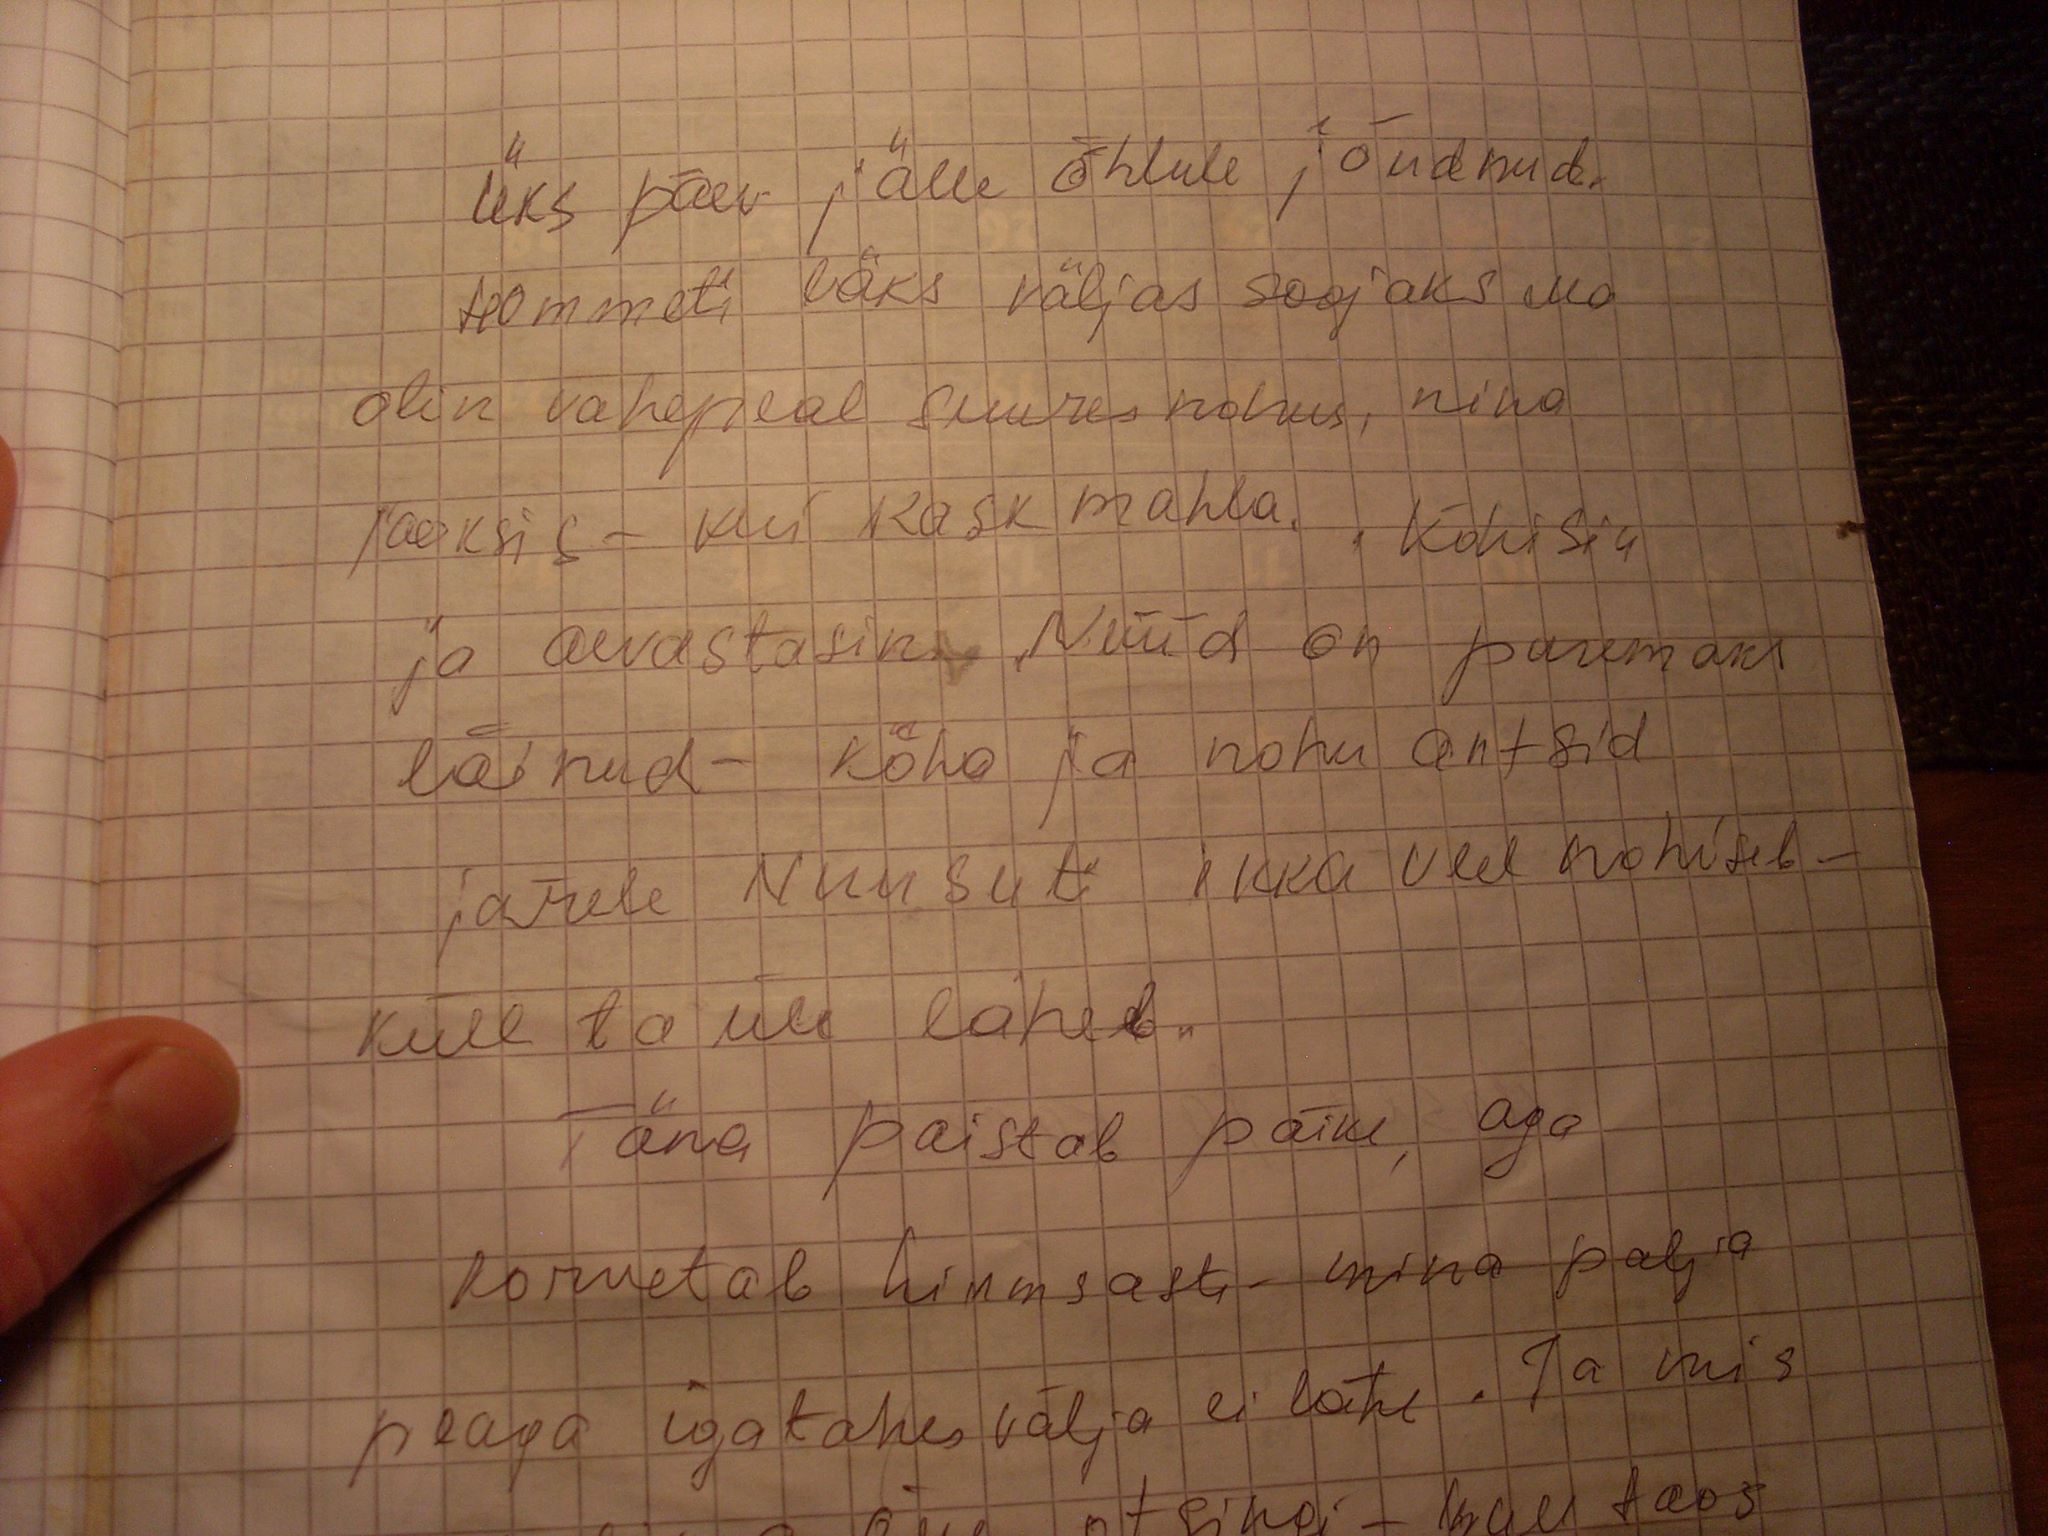 üks päev jälle õhtule jõudnud.
Hommeti läks väljas soojaks Ma
olin vahepeal suures nohus, nina
jooksis - kui kask mahla. Köhisin
ja aevastasin. Nüüd on paremaks
läinud - köha ja nohu antsid
järele Nuusuti ikka veel nohiseb -
küll ta üle läheb.
Täna paistab päike, aga
korvetab hirmsasti - mina palja
peaga igatahes välja ei lähe. Ja mis
otsingi - kuu taos